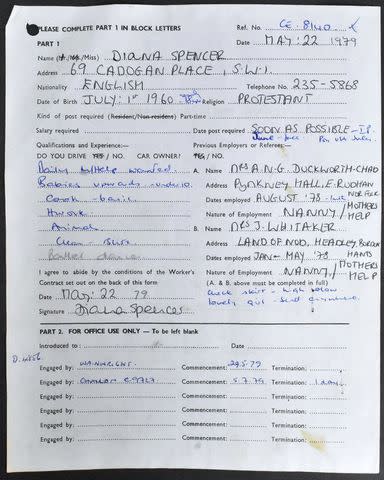 PLEASE COMPLETE PART 1 IN BLOCK LETTERS Ref. No. CE 8140
PART 1 Date MAY: 22 1979
Name (Mr./Mrs./Miss) DIANA SPENCER
Address 69 CADOGAN PLACE, S.W.1.
Nationality ENGLISH Telephone No. 235-5868
Date of Birth JULY: 1st 1960 Religion PROTESTANT
Kind of post required (Resident/Non-resident) Part-time
Salary required Date post required SOON AS POSSIBLE
Qualifications and Experience:— Previous Employers or Referee:—
DO YOU DRIVE YES / NO. CAR OWNER? YES / NO.
A. Name MRS A.N.G. DUCKWORTH-CHAD
Address PYNKNEY HALL, E. RUDHAM
NORFOLK
Dates employed AUGUST '78
Nature of Employment NANNY / MOTHERS HELP
B. Name MRS J. WHITAKER
Address LAND OF NOD, HEADLEY, BORDON
HANTS
Dates employed JAN - MAY '78
Nature of Employment NANNY / MOTHERS HELP
(A. & B. above must be completed in full)
Mothers help wanted
Babies upwards
Cook - basic
Animal
Clean - Sure
Ballet dance
I agree to abide by the conditions of the Worker's
Contract set out on the back of this form
Date May: 22 79
Signature Diana Spencer
lovely girl - send anywhere
PART 2. FOR OFFICE USE ONLY — To be left blank
Introduced to: Date
Engaged by: WAINWRIGHT Commencement: 29.5.79 Termination:
Engaged by: Commencement: 5.7.79 Termination: 1 day
Engaged by: Commencement: Termination:
Engaged by: Commencement: Termination:
Engaged by: Commencement: Termination:
Engaged by: Commencement: Termination: